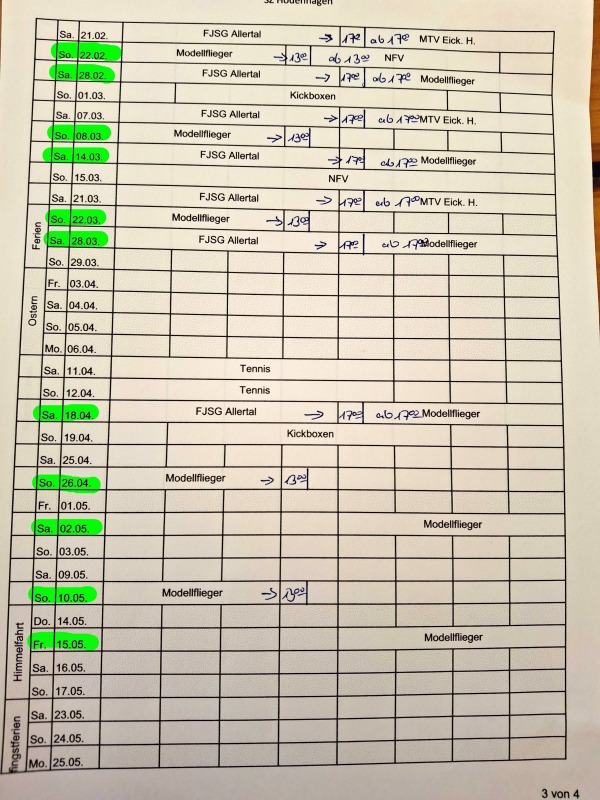 SZ Hodenhagen
Sa. 21.02. FJSG Allertal → 17⁰⁰ ab 17⁰⁰ MTV Eick. H.
So. 22.02. Modellflieger → 13⁰⁰ ab 13⁰⁰ NFV
Sa. 28.02. FJSG Allertal → 17⁰⁰ ab 17⁰⁰ Modellflieger
So. 01.03. Kickboxen
Sa. 07.03. FJSG Allertal → 17⁰⁰ ab 17⁰⁰ MTV Eick. H.
So. 08.03. Modellflieger → 13⁰⁰
Sa. 14.03. FJSG Allertal → 17⁰⁰ ab 17⁰⁰ Modellflieger
So. 15.03. NFV
Sa. 21.03. FJSG Allertal → 17⁰⁰ ab 17⁰⁰ MTV Eick. H.
Ferien
So. 22.03. Modellflieger → 13⁰⁰
Sa. 28.03. FJSG Allertal → 17⁰⁰ ab 17⁰⁰ Modellflieger
So. 29.03.
Ostern
Fr. 03.04.
Sa. 04.04.
So. 05.04.
Mo. 06.04.
Sa. 11.04. Tennis
So. 12.04. Tennis
Sa. 18.04. FJSG Allertal → 17⁰⁰ ab 17⁰⁰ Modellflieger
So. 19.04. Kickboxen
Sa. 25.04.
So. 26.04. Modellflieger → 13⁰⁰
Fr. 01.05.
Sa. 02.05. Modellflieger
So. 03.05.
Sa. 09.05.
So. 10.05. Modellflieger → 13⁰⁰
Himmelfahrt
Do. 14.05.
Fr. 15.05. Modellflieger
Sa. 16.05.
So. 17.05.
fingstferien
Sa. 23.05.
So. 24.05.
Mo. 25.05.
3 von 4